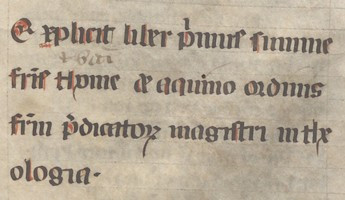 Explicit liber p̄mus summe
fr̄is thome de aquino ordinis
fr̄m p̄dicatoꝝ magistri in the
ologia.